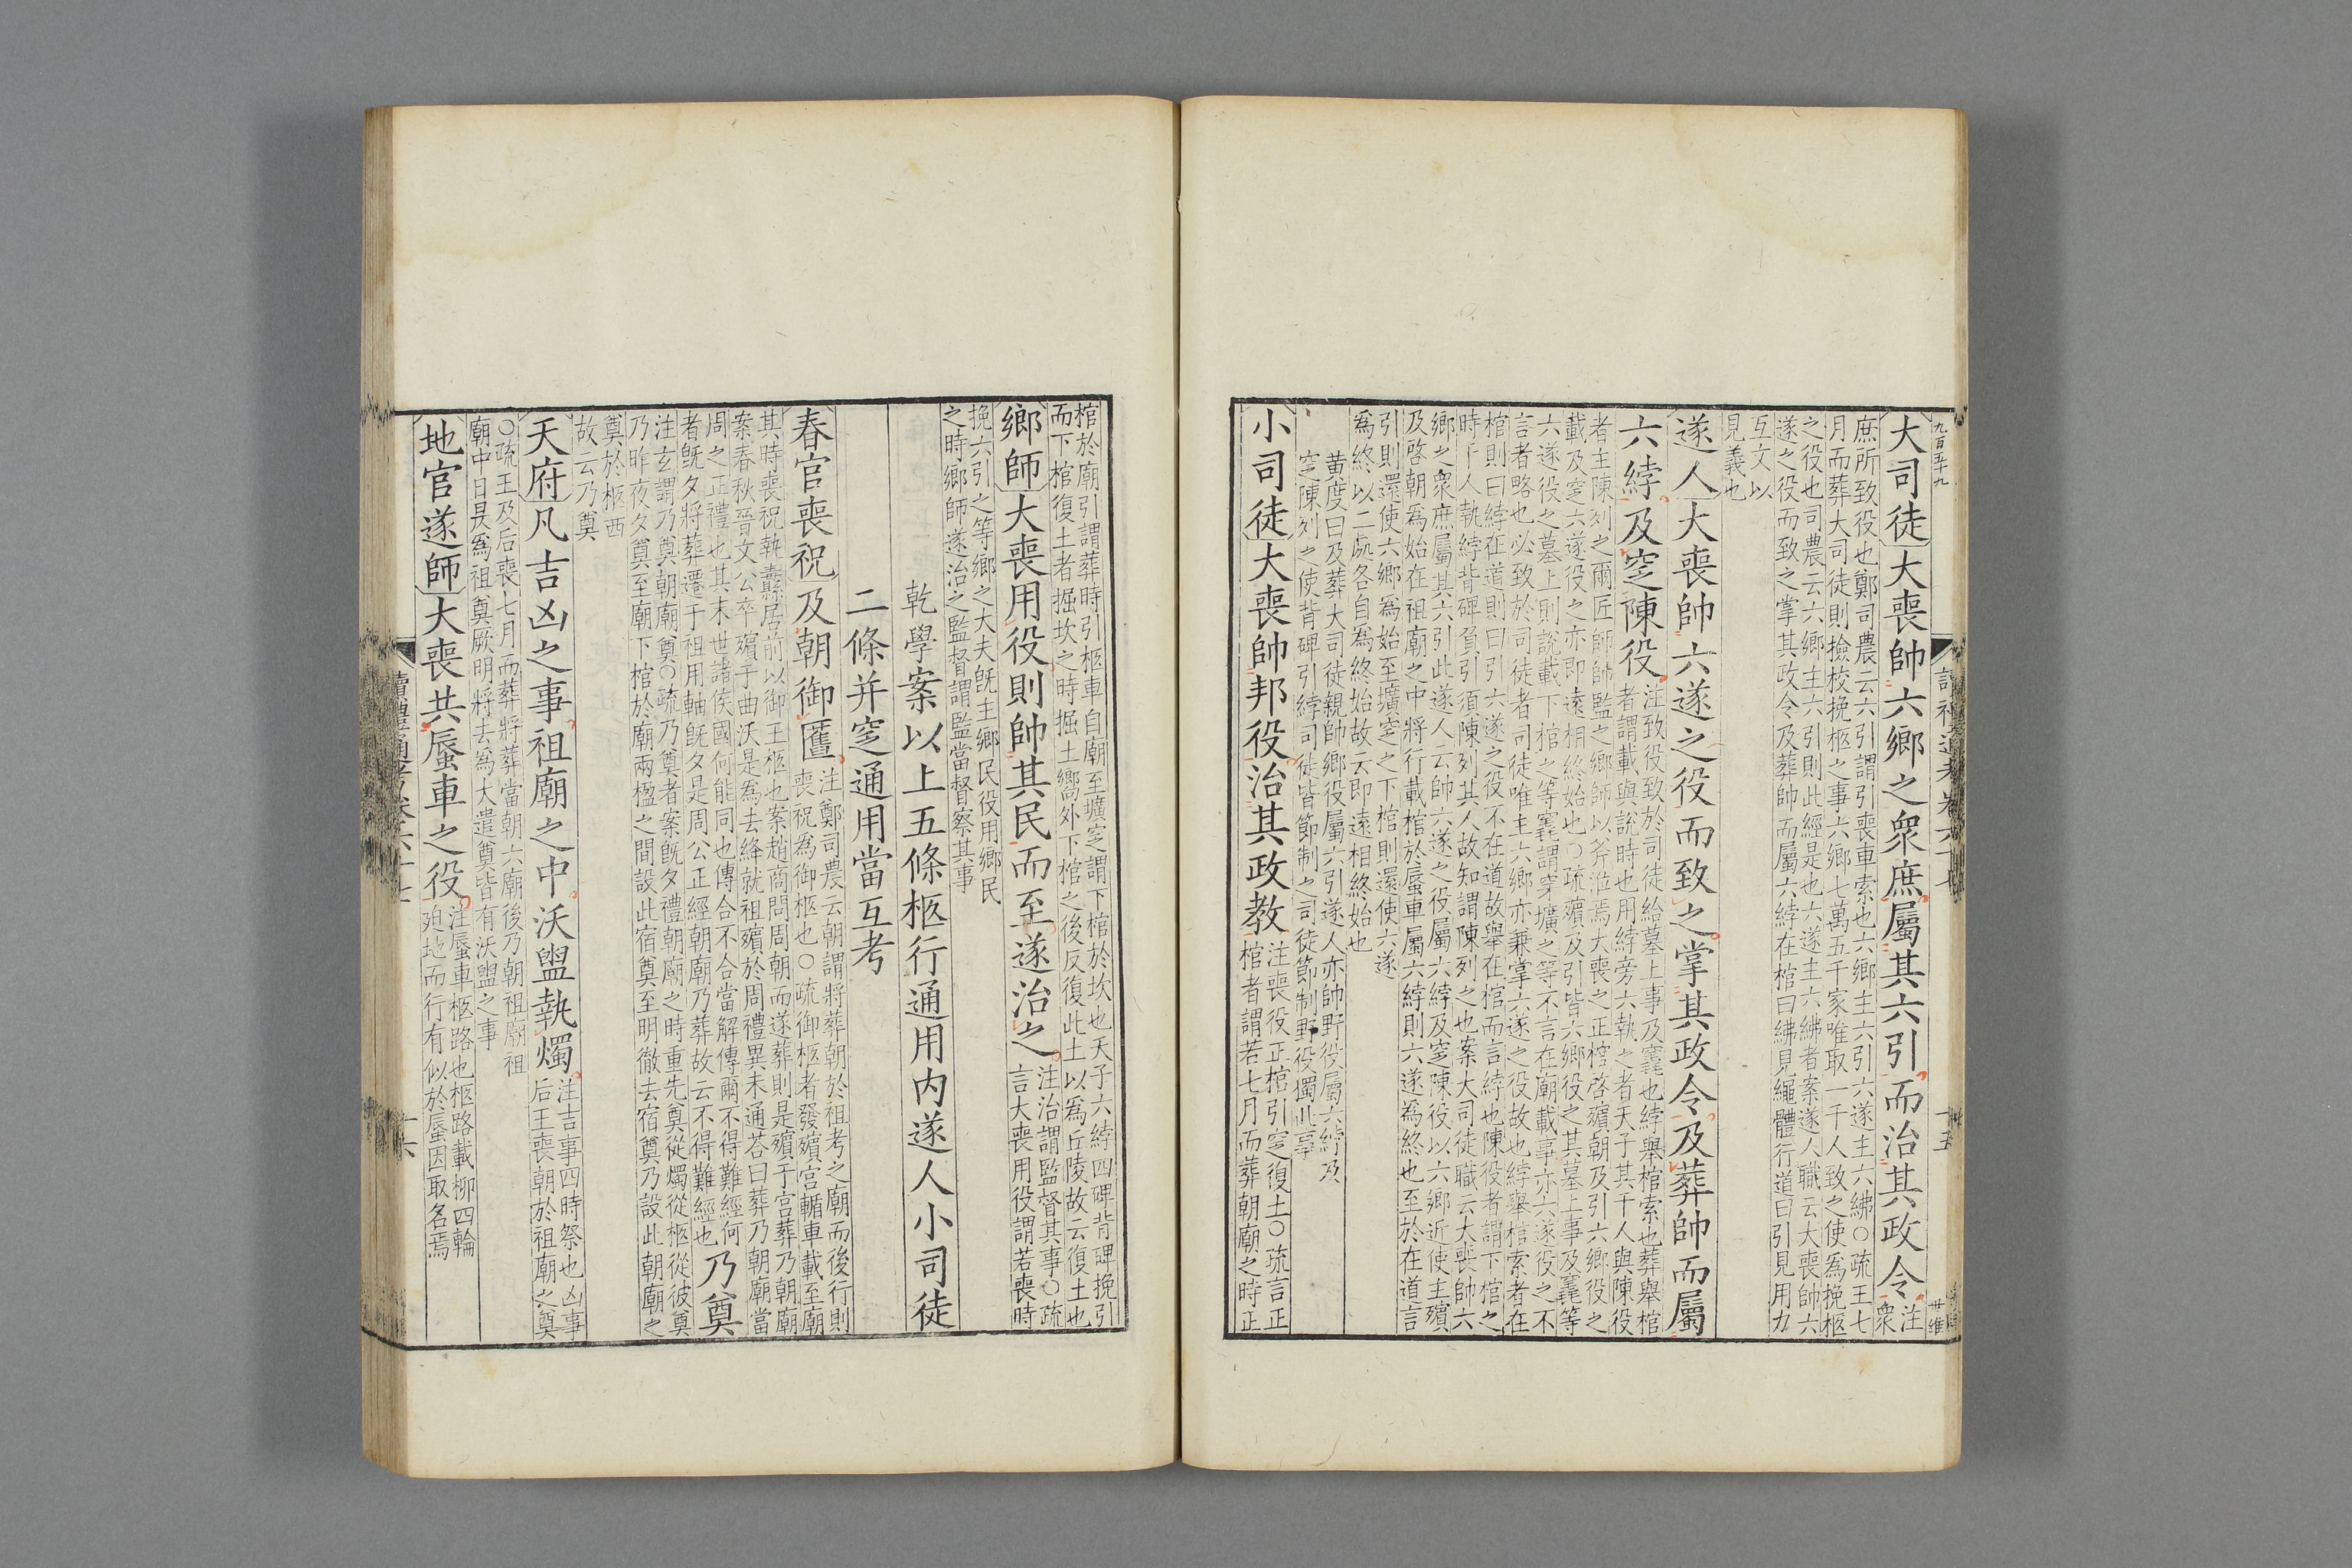 大司徒大喪帥六鄉之衆庶屬其六引而治其政令注衆
庶所致役也鄭司農云六引謂引喪車索也六鄉主六引六遂主六紼○疏王七
月而葬大司徒則撿校挽柩之事六鄉七萬五千家唯取一千人致之使爲挽柩
之役也司農云六鄉主六引則此經是也六遂主六紼者案遂人職云大喪帥六
遂之役而致之掌其政令及葬帥而屬六綍在棺曰紼見繩體行道曰引見用力
互文以
見義也
遂人大喪帥六遂之役而致之掌其政令及葬帥而屬
六綍及窆陳役
注致役致於司徒給墓上事及窆也綍舉棺索也葬舉棺
者謂載與說時也用綍旁六執之者天子其千人與陳役
者主陳列之爾匠師帥監之鄉師以斧涖焉大喪之正棺啓殯朝及引六鄉役之
載及窆六遂役之亦即遠相終始也○疏殯及引皆六鄉役之其墓上事及窆等
六遂役之墓上則說載下棺之等窆謂穿壙之等不言在廟載事亦六遂役之不
言者略也必致於司徒者司徒唯主六鄉亦兼掌六遂之役故也綍舉棺索者在
棺則曰綍在道則曰引六遂之役不在道故舉在棺而言綍也陳役者謂下棺之
時千人執綍背碑負引須陳列其人故知謂陳列之也案大司徒職云大喪帥六
鄉之衆庶屬其六引此遂人云帥六遂之役屬六綍及窆陳役以六鄉近使主殯
及啓朝爲始在祖廟之中將行載棺於蜃車屬六綍則六遂爲終也至於在道言
引則還使六鄉爲始至壙窆之下棺則還使六遂
爲終以二處各自爲終始故云即遠相終始也
黄度曰及葬大司徒親帥鄉役屬六引遂人亦帥野役屬六綍及
窆陳列之使背碑引綍司徒皆節制之司徒節制野役獨此事
小司徒大喪帥邦役治其政教
注喪役正棺引窆復土○疏言正
棺者謂若七月而葬朝廟之時正
棺於廟引謂葬時引柩車自廟至壙窆謂下棺於坎也天子六綍四碑背碑挽引
而下棺復土者掘坎之時掘土嚮外下棺之後反復此土以爲丘陵故云復土也
鄉師大喪用役則帥其民而至遂治之
注治謂監督其事○疏
言大喪用役謂若喪時
挽六引之等鄉之大夫旣主鄉民役用鄉民
之時鄉師遂治之監督謂監當督察其事
乾學案以上五條柩行通用内遂人小司徒
二條并窆通用當互考
春官喪祝及朝御匶
注鄭司農云朝謂將葬朝於祖考之廟而後行則
喪祝爲御柩也○疏御柩者發殯宮輴車載至廟
其時喪祝執纛居前以御王柩也案趙商問周朝而遂葬則是殯于宮葬乃朝廟
案春秋晉文公卒殯于曲沃是爲去絳就祖殯於周禮異未通荅曰葬乃朝廟當
周之正禮也其末世諸侯國何能同也傳合不合當解傳爾不得難經何
者旣夕將葬遷于祖用軸旣夕是周公正經朝廟乃葬故云不得難經也
乃奠
注玄謂乃奠朝廟奠○疏乃奠者案旣夕禮朝廟之時重先奠從燭從柩從彼奠
乃昨夜夕奠至廟下棺於廟兩楹之間設此宿奠至明徹去宿奠乃設此朝廟之
奠於柩西
故云乃奠
天府凡吉凶之事祖廟之中沃盥執燭
注吉事四時祭也凶事
后王喪朝於祖廟之奠
○疏王及后喪七月而葬將葬當朝六廟後乃朝祖廟祖
廟中日昃爲祖奠厥明將去爲大遣奠皆有沃盥之事
地官遂師大喪共蜃車之役
注蜃車柩路也柩路載柳四輪
廹地而行有似於蜃因取名焉